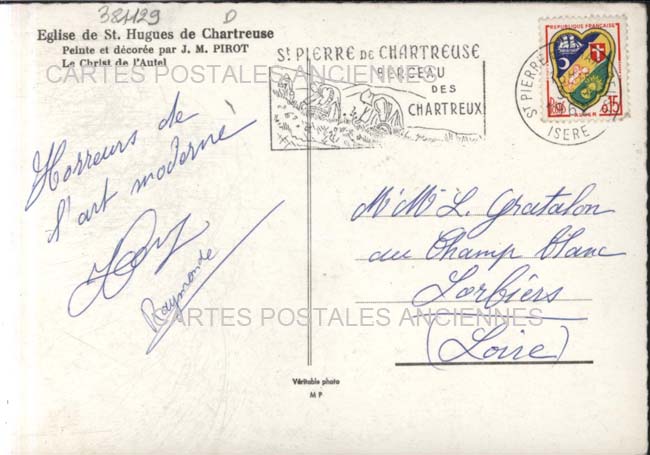 384129 D
Eglise de St. Hugues de Chartreuse
Peinte et décorée par J. M. PIROT
Le Christ de l'Autel
CARTES POSTALES ANCIENNES
St PIERRE DE CHARTREUSE
BERCEAU
DES
CHARTREUX
REPUBLIQUE FRANÇAISE
0,15
ALGER
St PIERRE
ISERE
Horreurs de
l'art moderne
Raymonde
Mr Me L. Gratalon
au Champ blanc
Sorbiers
(Loire)
CARTES POSTALES ANCIENNES
Véritable photo
M P